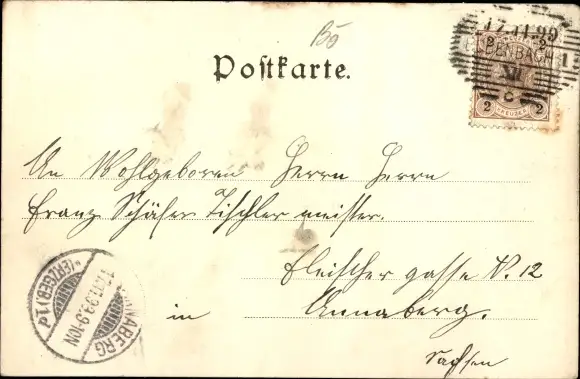 Bö
17.11.99
BENBACH
XII
2 KREUZER 2
Postkarte.
An Wohlgeboren Herrn Herrn
Franz Schäfer Tischlermeister.
Fleischer gasse N. 12
in Annaberg.
Sachsen
ANNABERG
(ERZGEB.) 1 P
17.11.99. 9-10N